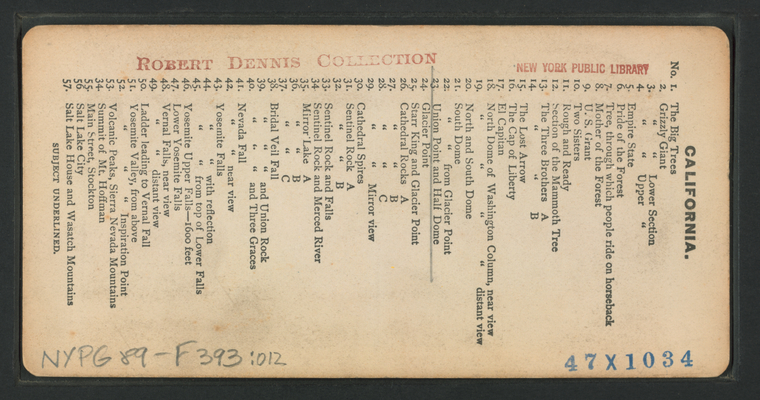 ROBERT DENNIS COLLECTION
NEW YORK PUBLIC LIBRARY
CALIFORNIA.
No. 1. The Big Trees
2. Grizzly Giant
3. " " Lower Section
4. " " Upper "
5. Empire State
6. Pride of the Forest
7. Tree, through which people ride on horseback
8. Mother of the Forest
9. U. S. Grant
10. Two Sisters
11. Rough and Ready
12. Section of the Mammoth Tree
13. The Three Brothers A
14. " " " B
15. The Lost Arrow
16. The Cap of Liberty
17. El Capitan
18. North Dome of Washington Column, near view
19. " " " " distant view
20. North and South Dome
21. South Dome
22. " " from Glacier Point
23. Union Point and Half Dome
24. Glacier Point
25. Starr King and Glacier Point
26. Cathedral Rocks A
27. " " B
28. " " C
29. " " Mirror view
30. Cathedral Spires
31. Sentinel Rock A
32. " " B
33. Sentinel Rock and Falls
34. Sentinel Rock and Merced River
35. Mirror Lake A
36. " " B
37. " " C
38. Bridal Veil Fall
39. " " " and Union Rock
40. " " " and Three Graces
41. Nevada Fall
42. " " near view
43. Yosemite Falls
44. " " with reflection
45. " " from top of Lower Falls
46. Yosemite Upper Falls—1600 feet
47. Lower Yosemite Falls
48. Vernal Falls, near view
49. " " distant view
50. Ladder leading to Vernal Fall
51. Yosemite Valley, from above
52. " " Inspiration Point
53. Volcanic Peaks, Sierra Nevada Mountains
54. Summit of Mt. Hoffman
55. Main Street, Stockton
56. Salt Lake City
57. Salt Lake House and Wasatch Mountains
SUBJECT UNDERLINED.
NYPG 89-F393:012
47X1034